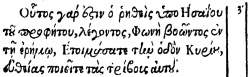 Οὗτος γάρ ἐστιν ὁ ῥηθεὶς ὑπὸ Ἡσαΐου 3
τοῦ προφήτου, λέγοντος, Φωνὴ βοῶντος ἐν
τῇ ἐρήμῳ, Ἑτοιμάσατε τὴν ὁδὸν Κυρίου,
εὐθείας ποιεῖτε τὰς τρίβους αὐτοῦ.